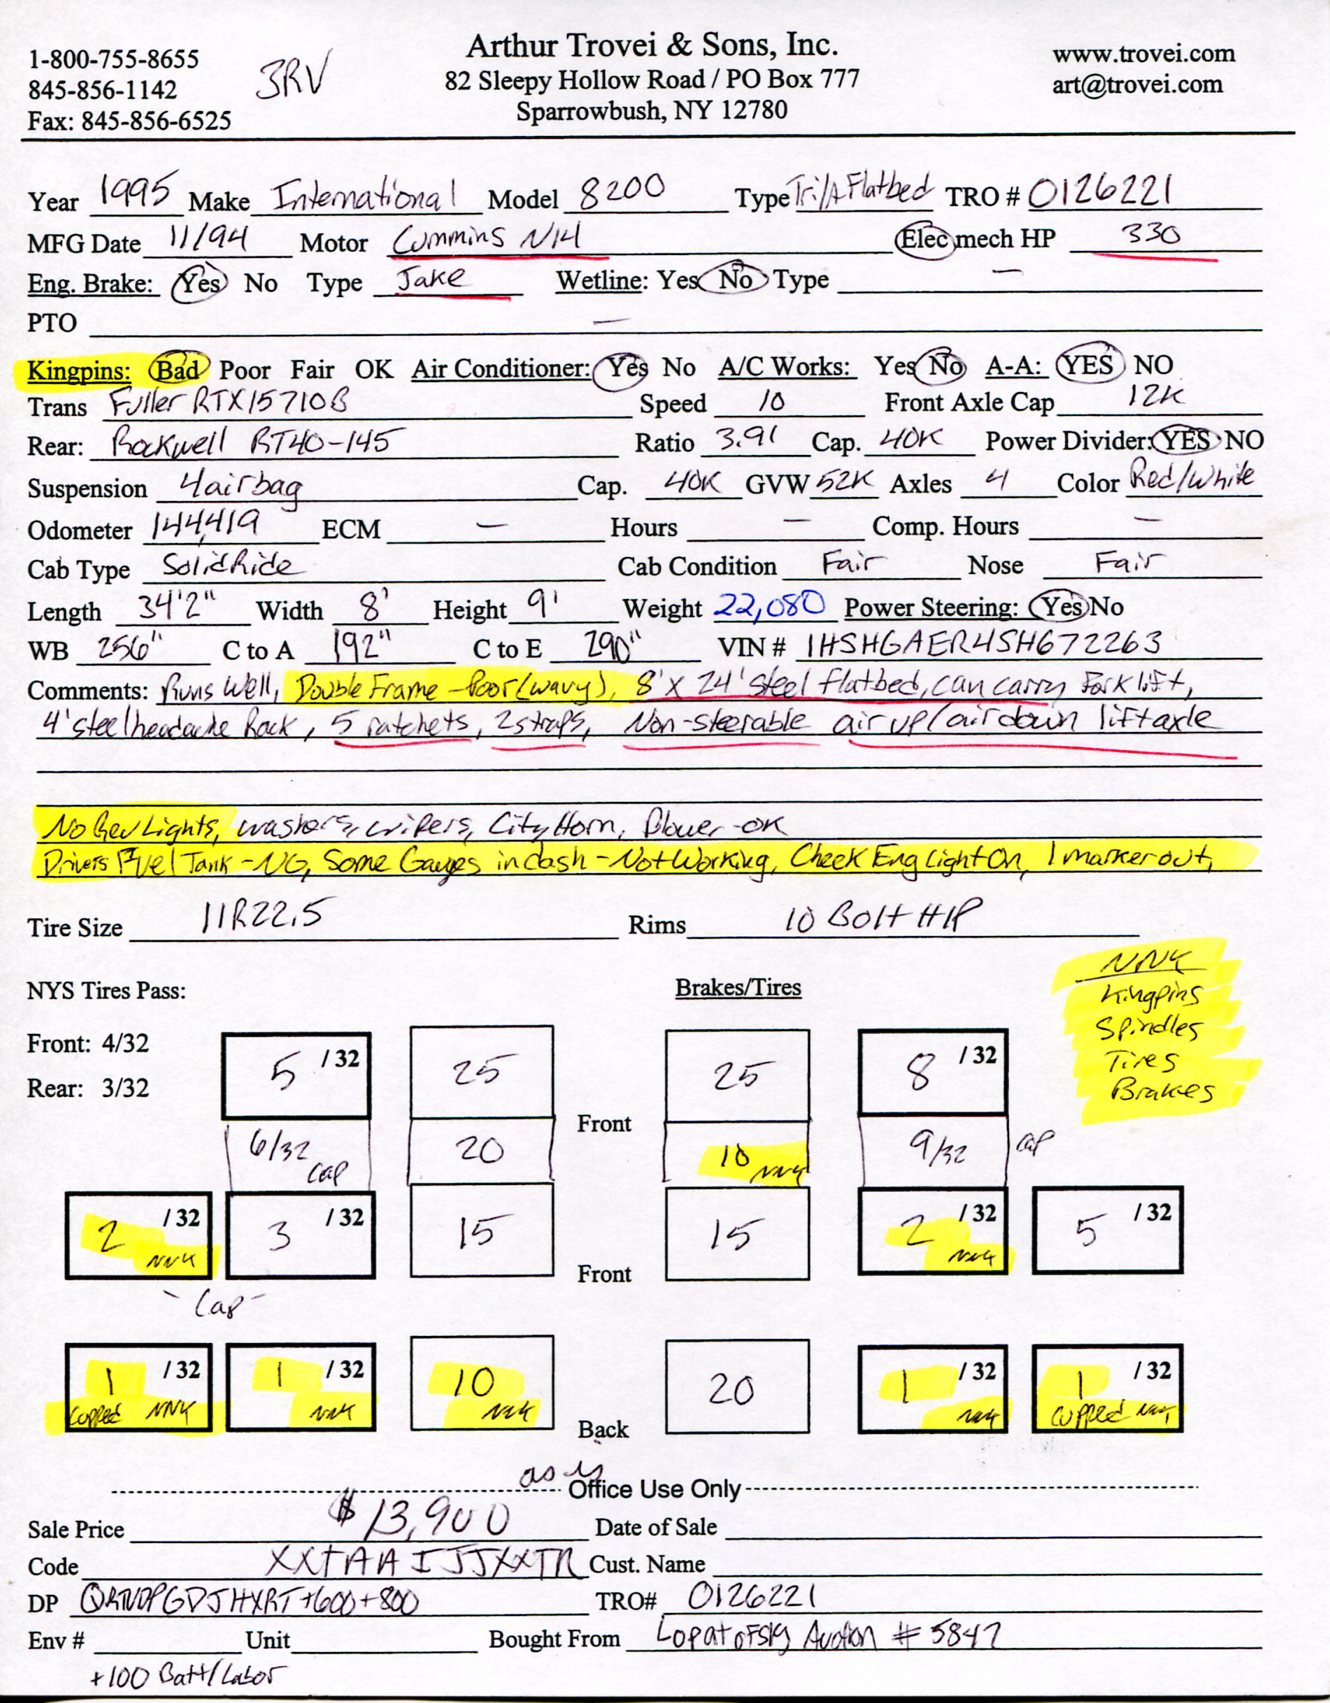 1-800-755-8655
845-856-1142
Fax: 845-856-6525
3RV
Arthur Trovei & Sons, Inc.
82 Sleepy Hollow Road / PO Box 777
Sparrowbush, NY 12780
www.trovei.com
art@trovei.com
Year 1995 Make International Model 8200 Type Tri/A Flatbed TRO # 0126221
MFG Date 11/94 Motor Cummins N14 Elec mech HP 330
Eng. Brake: Yes No Type Jake Wetline: Yes No Type —
PTO —
Kingpins: Bad Poor Fair OK Air Conditioner: Yes No A/C Works: Yes No A-A: YES NO
Trans Fuller RTX15710B Speed 10 Front Axle Cap 12K
Rear: Rockwell RT40-145 Ratio 3.91 Cap. 40K Power Divider: YES NO
Suspension 4airbag Cap. 40K GVW 52K Axles 4 Color Red/White
Odometer 144,419 ECM — Hours — Comp. Hours —
Cab Type Solid Ride Cab Condition Fair Nose Fair
Length 34'2" Width 8' Height 9' Weight 22,080 Power Steering: Yes No
WB 256" C to A 192" C to E 290" VIN # 1HSHGAER4SH672263
Comments: Runs Well, Double Frame - Poor (wavy), 8' x 24' steel flatbed, can carry Forklift,
4' steel headache Rack, 5 ratchets, 2 straps, Non-steerable air up/air down lift axle
No Rev Lights, washers, wipers, City Horn, Blower-OK
Drivers Fuel Tank - NG, Some Gauges in dash - Not Working, Check Eng Light On, 1 marker out,
Tire Size 11R22.5 Rims 10 Bolt H/P
NYS Tires Pass:
Brakes/Tires
NNY
Kingpins
Spindles
Tires
Brakes
Front: 4/32
Rear: 3/32
5 /32 25 Front 25 8 /32
6/32 cap 20 10 NNY 9/32 cap
2 /32 NNY 3 /32 15 Front 15 2 /32 NNY 5 /32
- Cap -
1 /32 cupped NNY 1 /32 NNY 10 NNY Back 20 1 /32 NNY 1 /32 cupped NNY
as is
Office Use Only
Sale Price $13,900 Date of Sale
Code XXTAAIJJXXTR Cust. Name
DP +600+800 TRO# 0126221
Env # Unit Bought From Lopatofsky Auction # 5847
+100 Batt/Labor